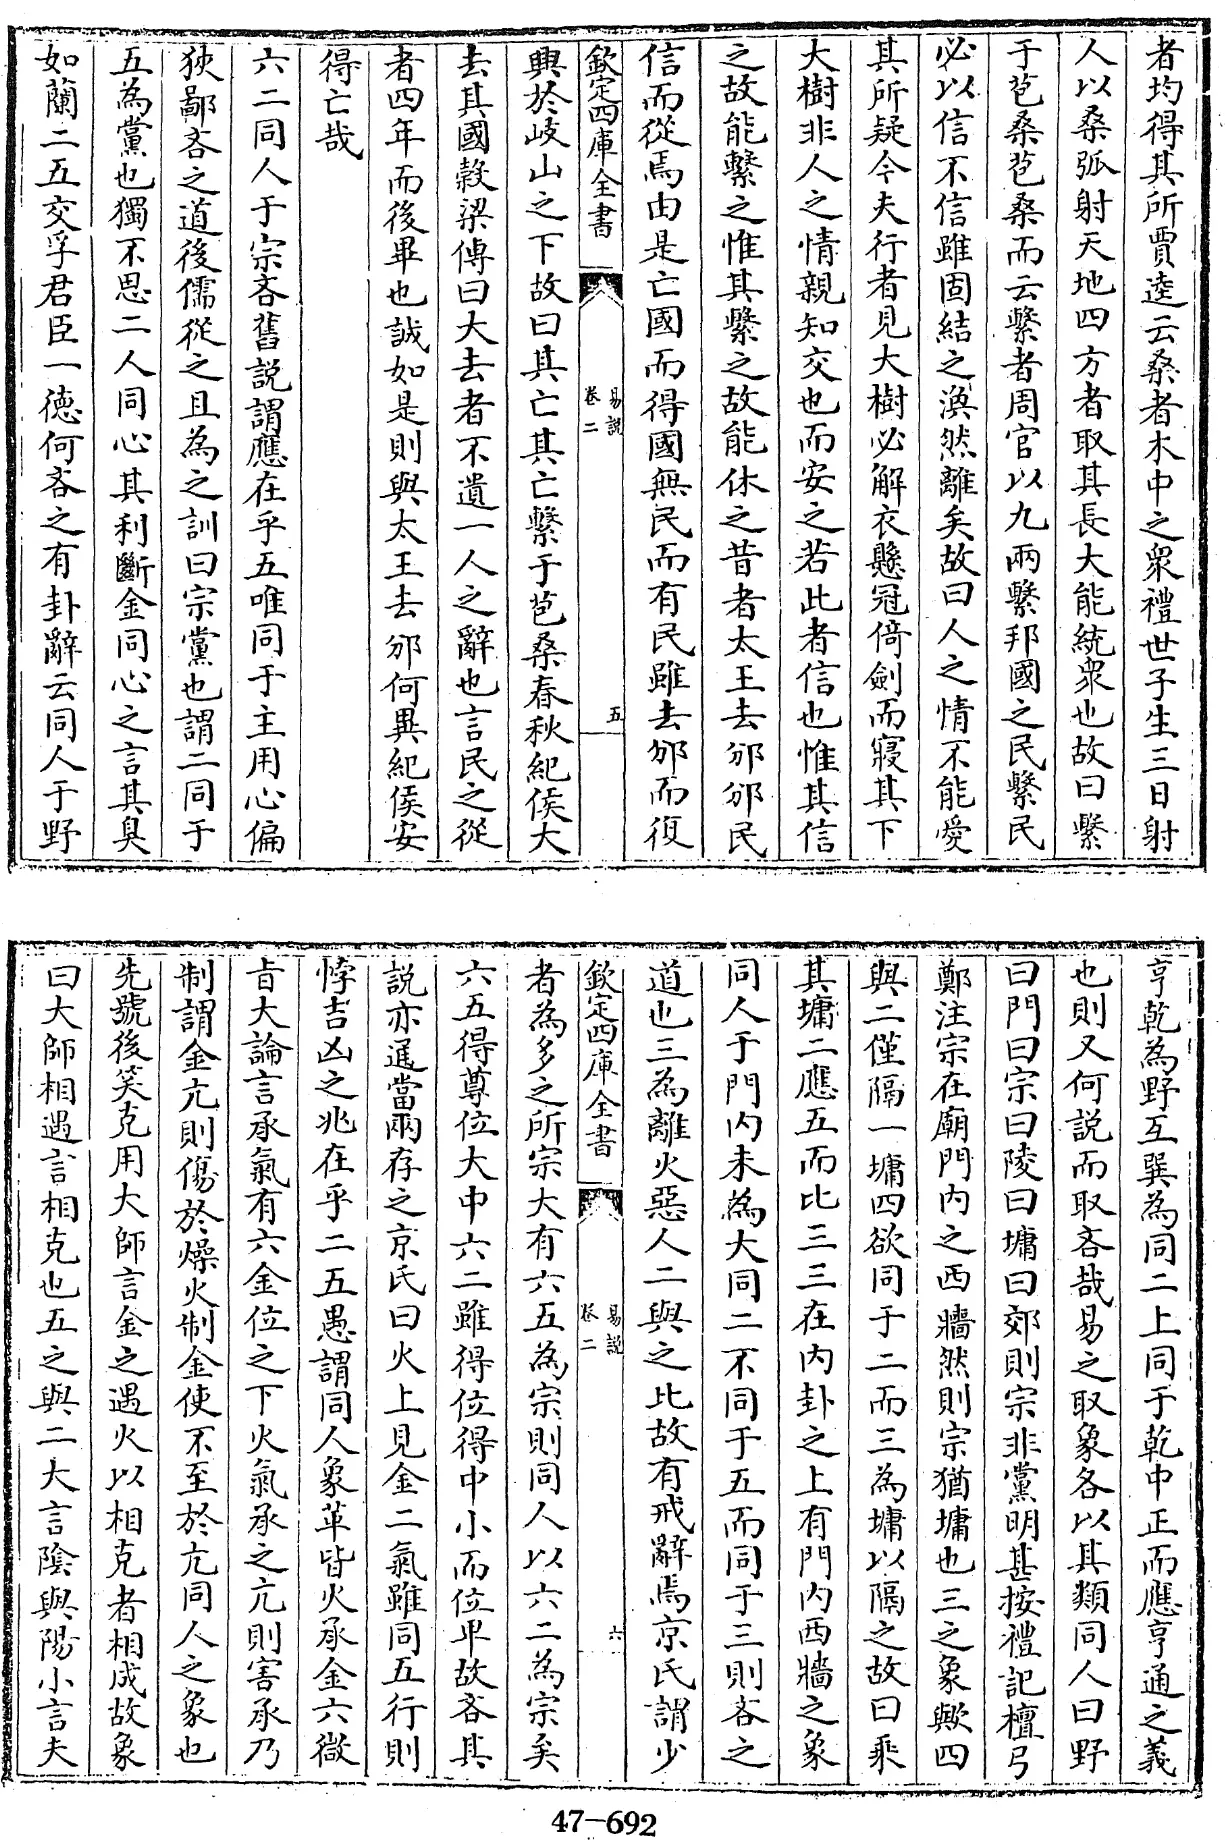 者均得其所賈逵云桑者木中之衆禮世子生三日射
人以桑弧射天地四方者取其長大能統衆也故曰繫
于苞桑苞桑而云繫者周官以九兩繫邦國之民繫民
必以信不信雖固結之渙然離矣故曰人之情不能愛
其所疑今夫行者見大樹必解衣懸冠倚劍而寢其下
大樹非人之情親知交也而安之若此者信也惟其信
之故能繫之惟其繫之故能休之昔者太王去邠邠民
信而從焉由是亡國而得國無民而有民雖去邠而復
欽定四庫全書
易說
卷二
五
興於岐山之下故曰其亡其亡繫于苞桑春秋紀侯大
去其國穀梁傳曰大去者不遺一人之辭也言民之從
者四年而後畢也誠如是則與太王去邠何異紀侯安
得亡哉
六二同人于宗吝舊說謂應在乎五唯同于主用心偏
狹鄙吝之道後儒從之且為之訓曰宗黨也謂二同于
五為黨也獨不思二人同心其利斷金同心之言其臭
如蘭二五交孚君臣一德何吝之有卦辭云同人于野
亨乾為野互巽為同二上同于乾中正而應亨通之義
也則又何說而取吝哉易之取象各以其類同人曰野
曰門曰宗曰陵曰墉曰郊則宗非黨明甚按禮記檀弓
鄭注宗在廟門内之西牆然則宗猶墉也三之象歟四
與二僅隔一墉四欲同于二而三為墉以隔之故曰乘
其墉二應五而比三三在内卦之上有門内西牆之象
同人于門内未為大同二不同于五而同于三則吝之
道也三為離火惡人二與之比故有戒辭焉京氏謂少
欽定四庫全書
易說
卷二
六
者為多之所宗大有六五為宗則同人以六二為宗矣
六五得尊位大中六二雖得位得中小而位卑故吝其
說亦通當兩存之京氏曰火上見金二氣雖同五行則
悖吉凶之兆在乎二五愚謂同人象革皆火承金六微
旨大論言承氣有六金位之下火氣承之亢則害承乃
制謂金亢則傷於燥火制金使不至於亢同人之象也
先號後笑克用大師言金之遇火以相克者相成故象
曰大師相遇言相克也五之與二大言陰與陽小言夫
47-692